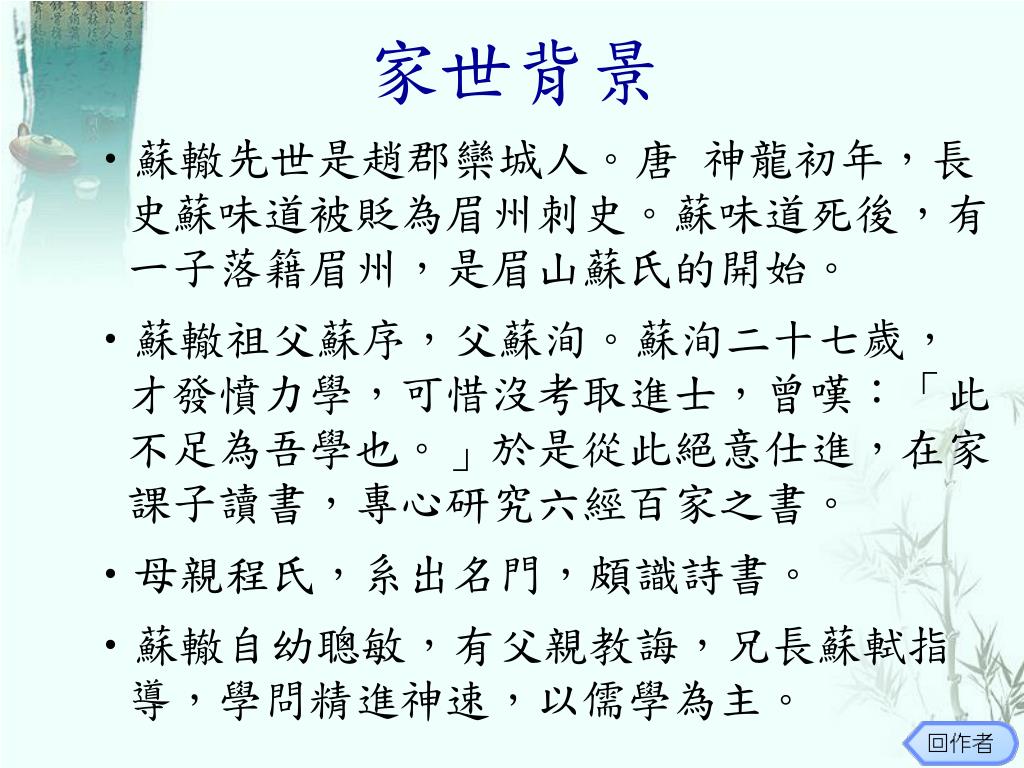 家世背景
•蘇轍先世是趙郡欒城人。唐 神龍初年，長
史蘇味道被貶為眉州刺史。蘇味道死後，有
一子落籍眉州，是眉山蘇氏的開始。
•蘇轍祖父蘇序，父蘇洵。蘇洵二十七歲，
才發憤力學，可惜沒考取進士，曾嘆：「此
不足為吾學也。」於是從此絕意仕進，在家
課子讀書，專心研究六經百家之書。
•母親程氏，系出名門，頗識詩書。
•蘇轍自幼聰敏，有父親教誨，兄長蘇軾指
導，學問精進神速，以儒學為主。
回作者